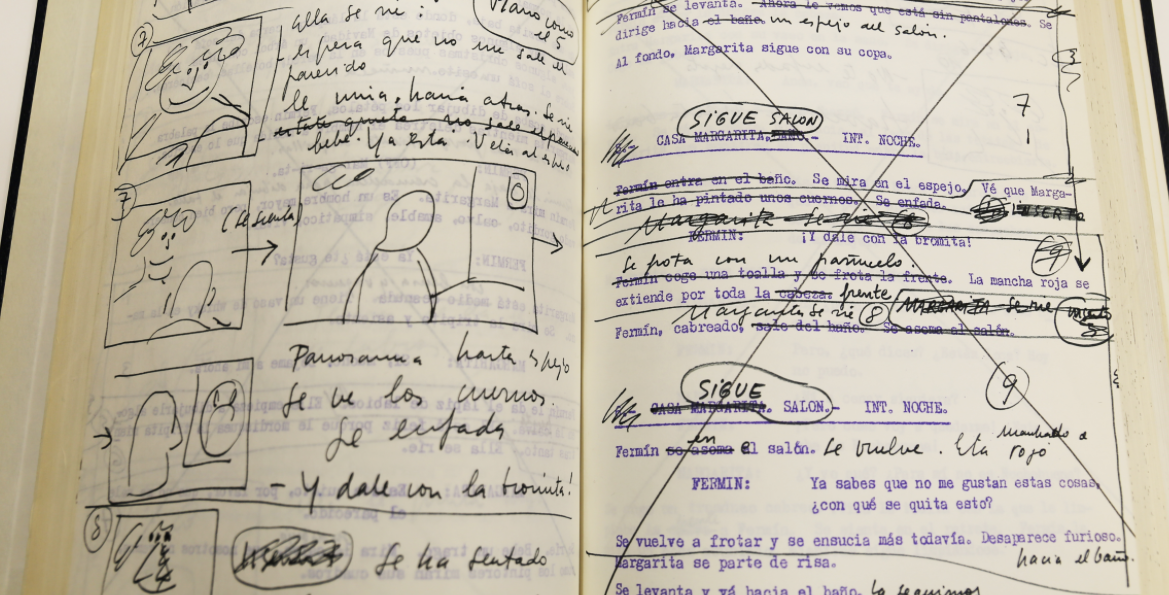 Plano como
el 5
ella se ríe:
- espera que no me sale el
parecido
7
le mira, hacia atrás. Se ríe
estate quieto no sale el parecido
bebé. Ya está. Vete al espejo
7
(se sienta)
Panoramica hasta espejo
Se ve los cuernos.
Se enfada
- Y dale con la bromita!
8
Se ha sentado
Fermín se levanta. Ahora le vemos que está sin pantalones. Se
dirige hacia el baño. un espejo del salon.
Al fondo, Margarita sigue con su copa.
7
1
SIGUE SALON
CASA MARGARITA. BAÑO.- INT. NOCHE.
Fermín entra en el baño. Se mira en el espejo. Vé que Marga-
rita le ha pintado unos cuernos. Se enfada. INSERTO
Margarita se ríe
FERMIN: ¡Y dale con la bromita!
Se frota con un pañuelo.
Fermín coge una toalla y se frota la frente. La mancha roja se
extiende por toda la cabeza. frente
Margarita se ríe 8 MARGARITA se ríe
Fermín, cabreado, sale del baño. Se asoma al salón.
9
SIGUE
CASA MARGARITA. SALON.- INT. NOCHE.
Fermín se asoma en el salón. Se vuelve. Esta manchado de
rojo
FERMIN: Ya sabes que no me gustan estas cosas,
¿con qué se quita esto?
Se vuelve a frotar y se ensucia más todavía. Desaparece furioso.
hacia el baño.
Margarita se parte de risa.
Se levanta y vá hacia el baño. la seguimos